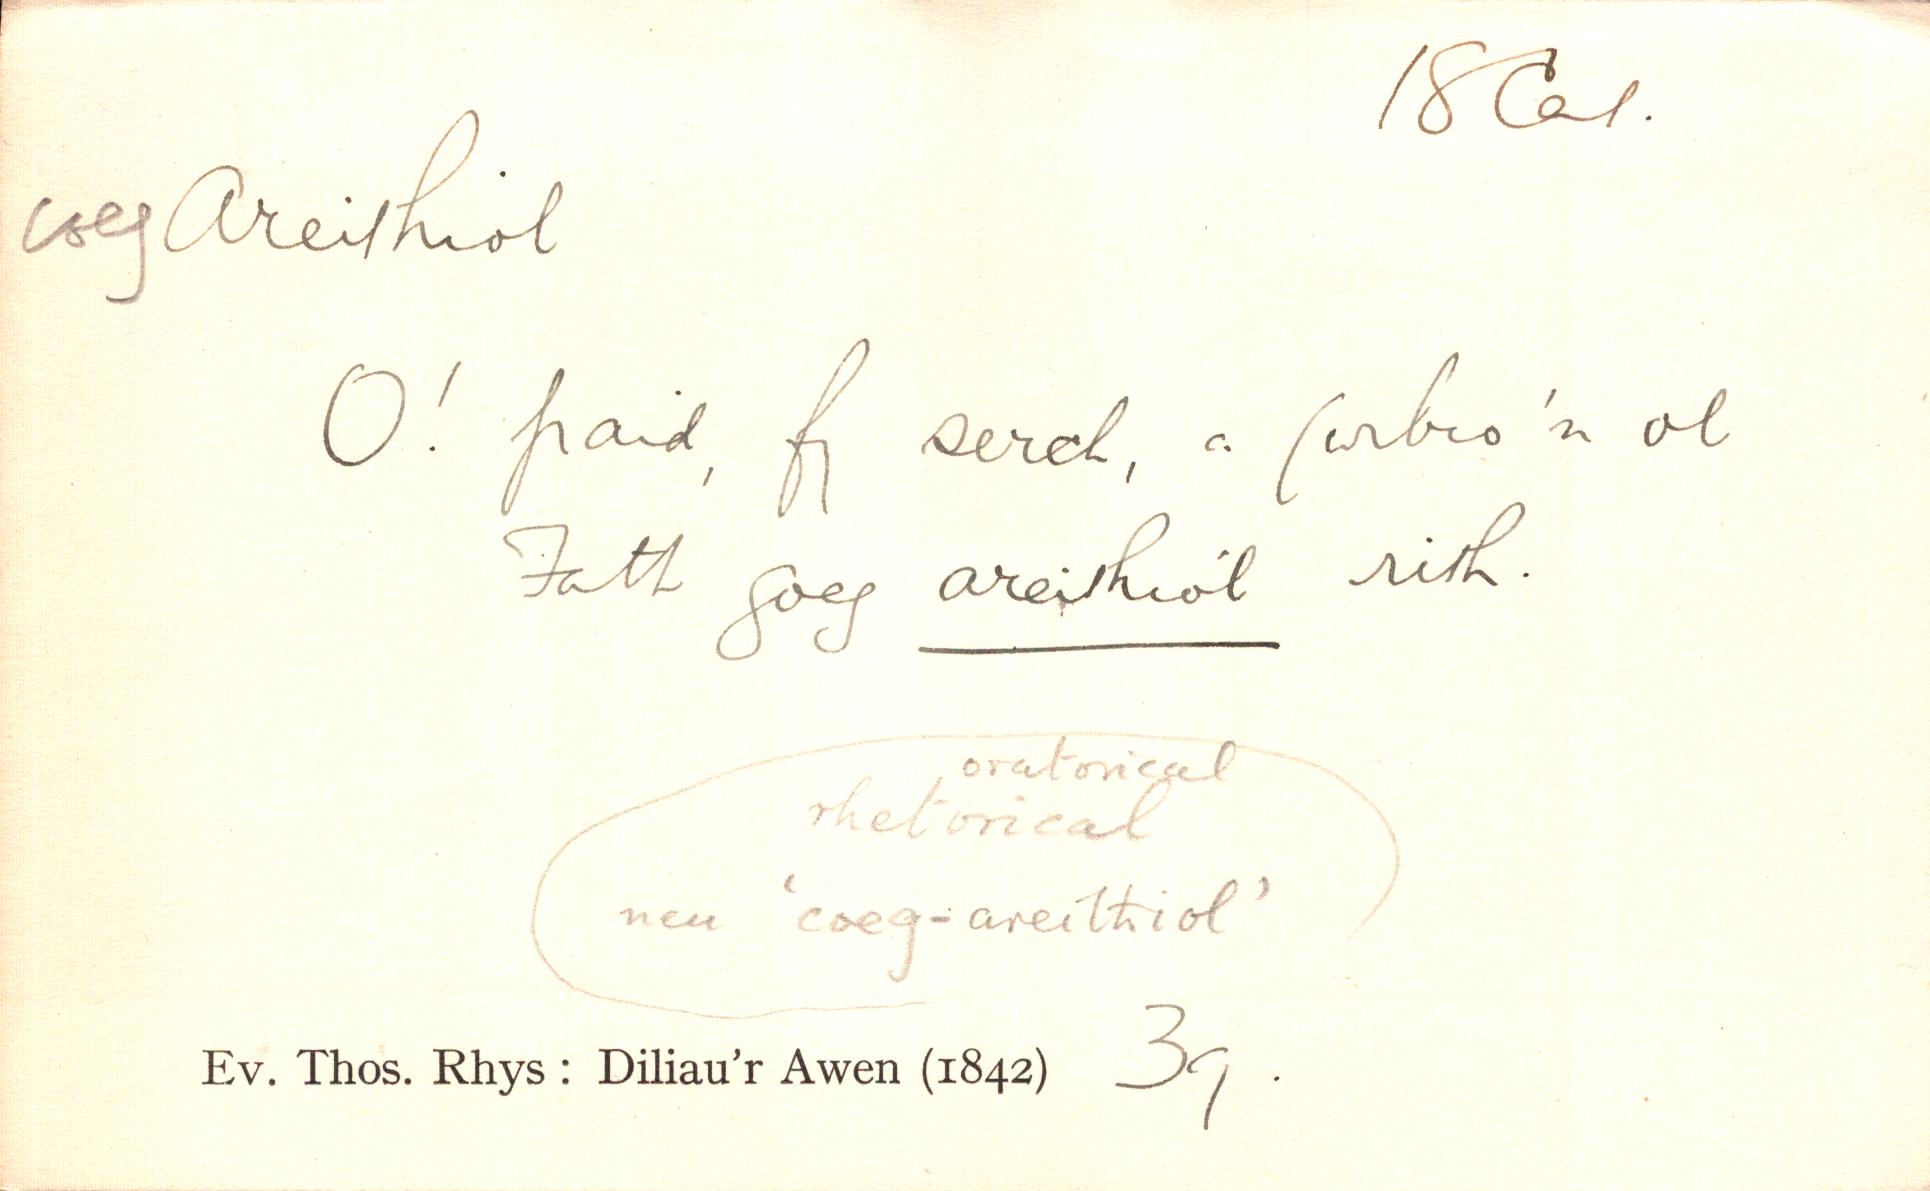 18 Cal.
coeg Areithiol
O! paid, fy serch, a gwrbro'n ol
Fath goeg areithiol rith.
oratorical
rhetorical
neu 'coeg-areithiol'
Ev. Thos. Rhys: Diliau'r Awen (1842) 39.